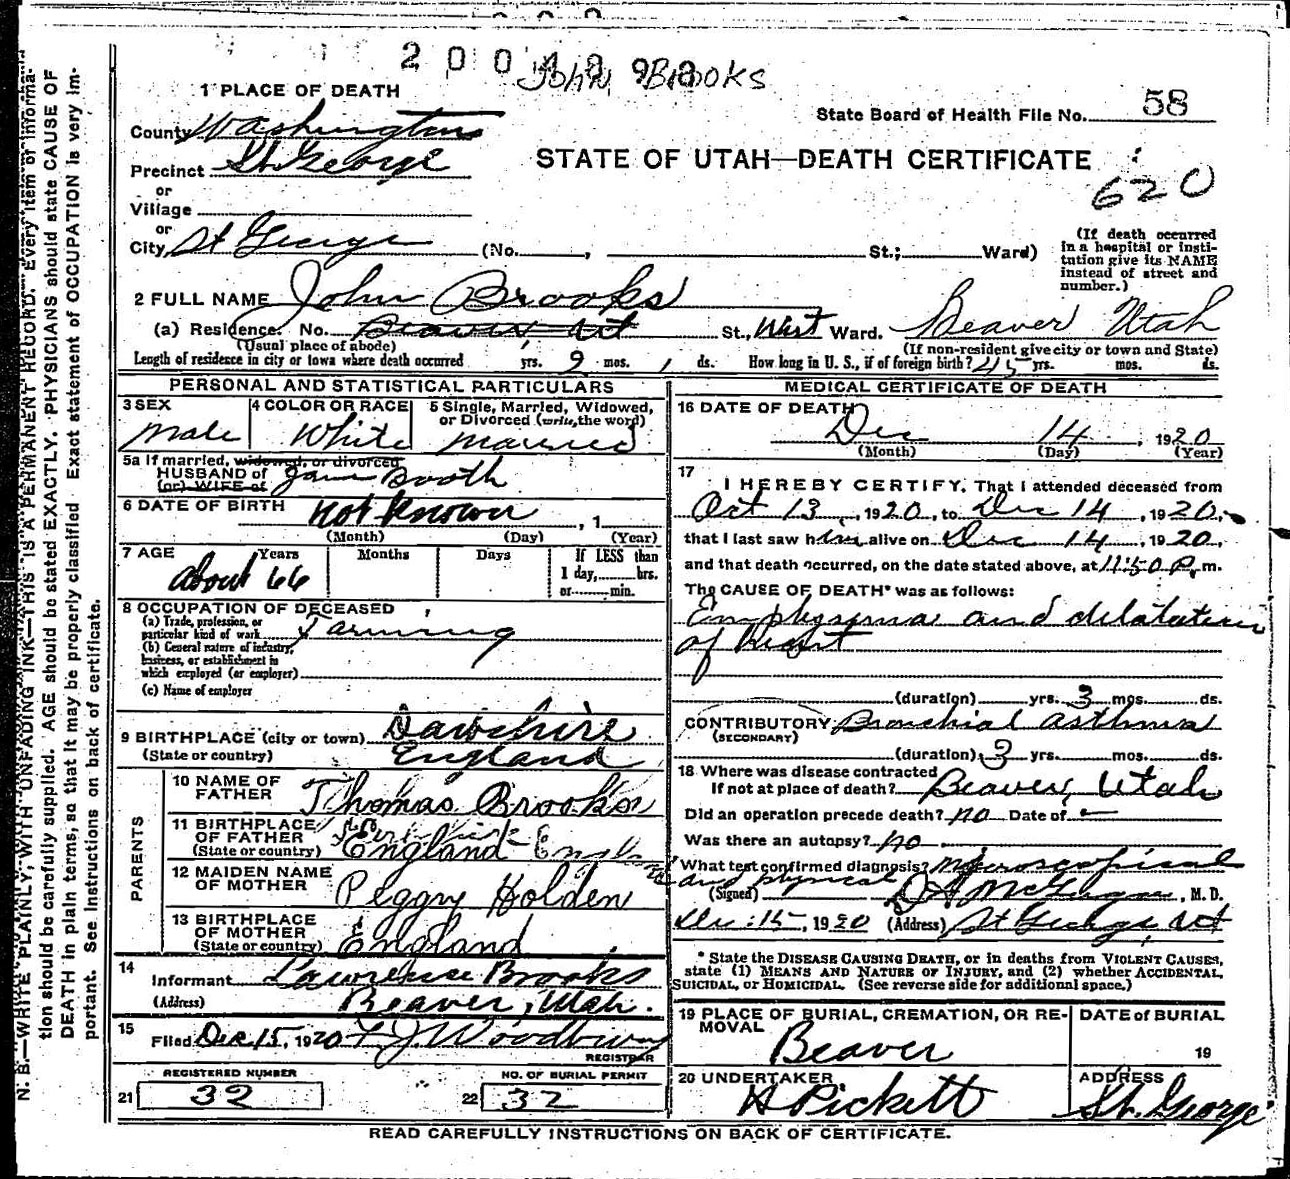 2004998
John Brooks
1 PLACE OF DEATH
State Board of Health File No. 58
County Washington
STATE OF UTAH—DEATH CERTIFICATE
620
Precinct St George
or
Village
or
City St George (No. , St.; Ward)
(If death occurred in a hospital or institution give its NAME instead of street and number.)
2 FULL NAME John Brooks
(a) Residence. No. Beaver Ut St., West Ward. Beaver Utah
(Usual place of abode) (If non-resident give city or town and State)
Length of residence in city or town where death occurred yrs. 9 mos. 1 ds. How long in U. S., if of foreign birth? 45 yrs. mos. ds.
PERSONAL AND STATISTICAL PARTICULARS
3 SEX Male
4 COLOR OR RACE White
5 Single, Married, Widowed, or Divorced (write the word) Married
5a If married, widowed, or divorced
HUSBAND of Jane Booth
(or) WIFE of
6 DATE OF BIRTH not known , 1
(Month) (Day) (Year)
7 AGE Years Months Days If LESS than 1 day, hrs. or min.
about 66
8 OCCUPATION OF DECEASED
(a) Trade, profession, or particular kind of work Farming
(b) General nature of industry, business, or establishment in which employed (or employer)
(c) Name of employer
9 BIRTHPLACE (city or town)
(State or country) England
PARENTS
10 NAME OF FATHER Thomas Brooks
11 BIRTHPLACE OF FATHER (State or country) England
12 MAIDEN NAME OF MOTHER Peggy Holden
13 BIRTHPLACE OF MOTHER (State or country) England
14 Informant Lawrence Brooks
(Address) Beaver, Utah.
15 Filed Dec 15, 1920 F J Woodbury
REGISTRAR
REGISTERED NUMBER
21 32
NO. OF BURIAL PERMIT
22 32
MEDICAL CERTIFICATE OF DEATH
16 DATE OF DEATH
Dec 14, 1920
(Month) (Day) (Year)
17
I HEREBY CERTIFY, That I attended deceased from
Oct 13, 1920, to Dec 14, 1920,
that I last saw him alive on Dec 14, 1920,
and that death occurred, on the date stated above, at 11:50 P. m.
The CAUSE OF DEATH* was as follows:
Emphysema and dilatation
of heart
(duration) yrs. 3 mos. ds.
CONTRIBUTORY Bronchial asthma
(SECONDARY)
(duration) 3 yrs. mos. ds.
18 Where was disease contracted
If not at place of death? Beaver, Utah
Did an operation precede death? no Date of
Was there an autopsy? no
What test confirmed diagnosis? Microscopical
and physical
(Signed) D A McGregor, M. D.
Dec. 15, 1920 (Address) St George, Ut
* State the DISEASE CAUSING DEATH, or in deaths from VIOLENT CAUSES,
state (1) MEANS AND NATURE OF INJURY, and (2) whether ACCIDENTAL,
SUICIDAL, or HOMICIDAL. (See reverse side for additional space.)
19 PLACE OF BURIAL, CREMATION, OR REMOVAL
Beaver
DATE of BURIAL
19
20 UNDERTAKER
H Pickett
ADDRESS
St. George
READ CAREFULLY INSTRUCTIONS ON BACK OF CERTIFICATE.
N. B.—WRITE PLAINLY, WITH UNFADING INK—THIS IS A PERMANENT RECORD. Every item of informa-
tion should be carefully supplied. AGE should be stated EXACTLY. PHYSICIANS should state CAUSE OF
DEATH in plain terms, so that it may be properly classified Exact statement of OCCUPATION is very im-
portant. See Instructions on back of certificate.